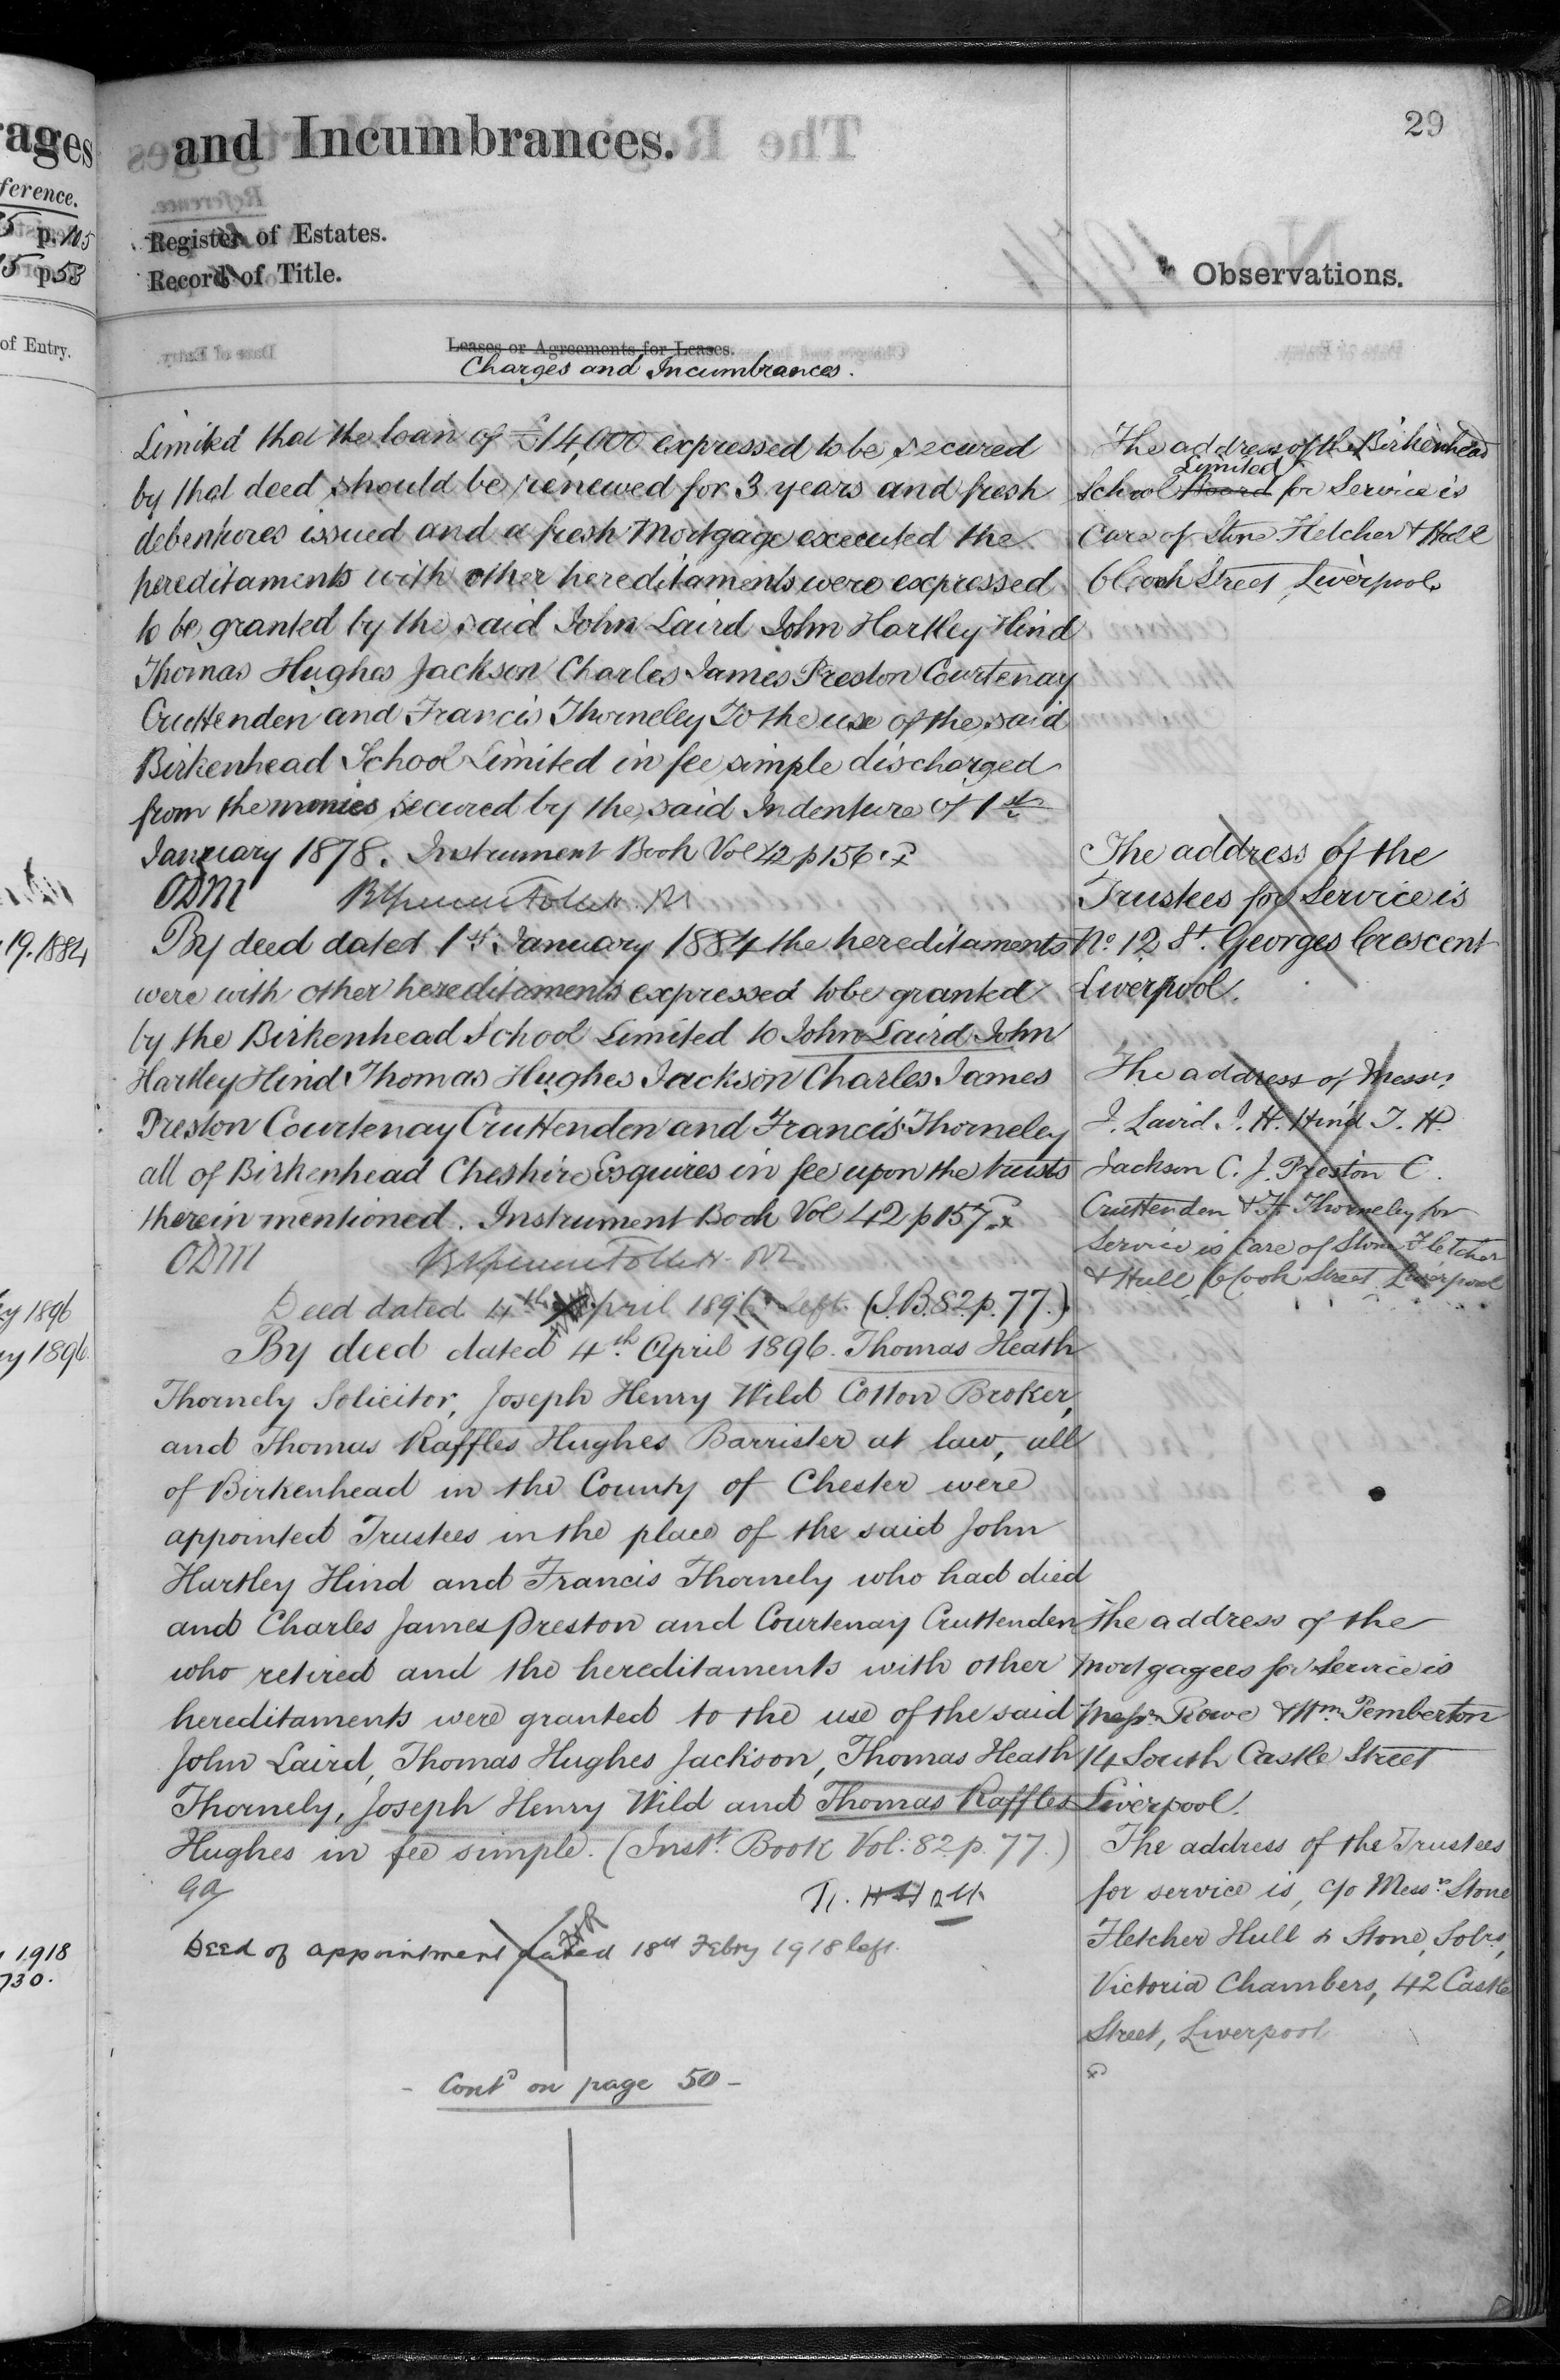 ages
ference.
p. 105
p. 53
of Entry.
19. 1884
1896
1896.
1918
730.
and Incumbrances.
29
Register of Estates.
Record of Title.
Observations.
Leases or Agreements for Leases.
Charges and Incumbrances.
Limited that the loan of £14,000 expressed to be secured
by that deed should be renewed for 3 years and fresh
debentures issued and a fresh Mortgage executed the
hereditaments with other hereditaments were expressed
to be granted by the said John Laird John Hartley Hind
Thomas Hughes Jackson Charles James Preston Courtenay
Cruttenden and Francis Thorneley To the use of the said
Birkenhead School Limited in fee simple discharged
from the monies secured by the said Indenture of 1st
January 1878. Instrument Book Vol 42 p 156.
ODM
By deed dated 1st January 1884 the hereditaments
were with other hereditaments expressed to be granted
by the Birkenhead School Limited to John Laird John
Hartley Hind Thomas Hughes Jackson Charles James
Preston Courtenay Cruttenden and Francis Thorneley
all of Birkenhead Cheshire Esquires in fee upon the trusts
therein mentioned. Instrument Book Vol 42 p 157.
ODM
Deed dated 4th April 1896 left. (I.B. 82 p. 77.)
By deed dated 4th April 1896. Thomas Heath
Thornely Solicitor, Joseph Henry Wild Cotton Broker,
and Thomas Raffles Hughes Barrister at law, all
of Birkenhead in the County of Chester were
appointed Trustees in the place of the said John
Hartley Hind and Francis Thornely who had died
and Charles James Preston and Courtenay Cruttenden
who retired and the hereditaments with other
hereditaments were granted to the use of the said
John Laird, Thomas Hughes Jackson, Thomas Heath
Thornely, Joseph Henry Wild and Thomas Raffles
Hughes in fee simple. (Instt. Book Vol: 82 p. 77.)
Deed of appointment dated 18th Febry 1918 left.
- Contd on page 50 -
The address of the Birkenhead
Limited
School Board for Service is
Care of Stone Fletcher & Hull
6 Cook Street Liverpool
The address of the
Trustees for Service is
No. 12 St. Georges Crescent
Liverpool.
The address of Messrs.
J. Laird J. H. Hind T. H.
Jackson C. J. Preston C.
Cruttenden & F. Thorneley for
Service is Care of Stone Fletcher
& Hull, 6 Cook Street Liverpool
The address of the
Mortgagees for Service is
Messrs Rowe & Wm. Pemberton
14 South Castle Street
Liverpool.
The address of the Trustees
for service is, c/o Messrs. Stone
Fletcher Hull & Stone, Solrs,
Victoria Chambers, 42 Castle
Street, Liverpool